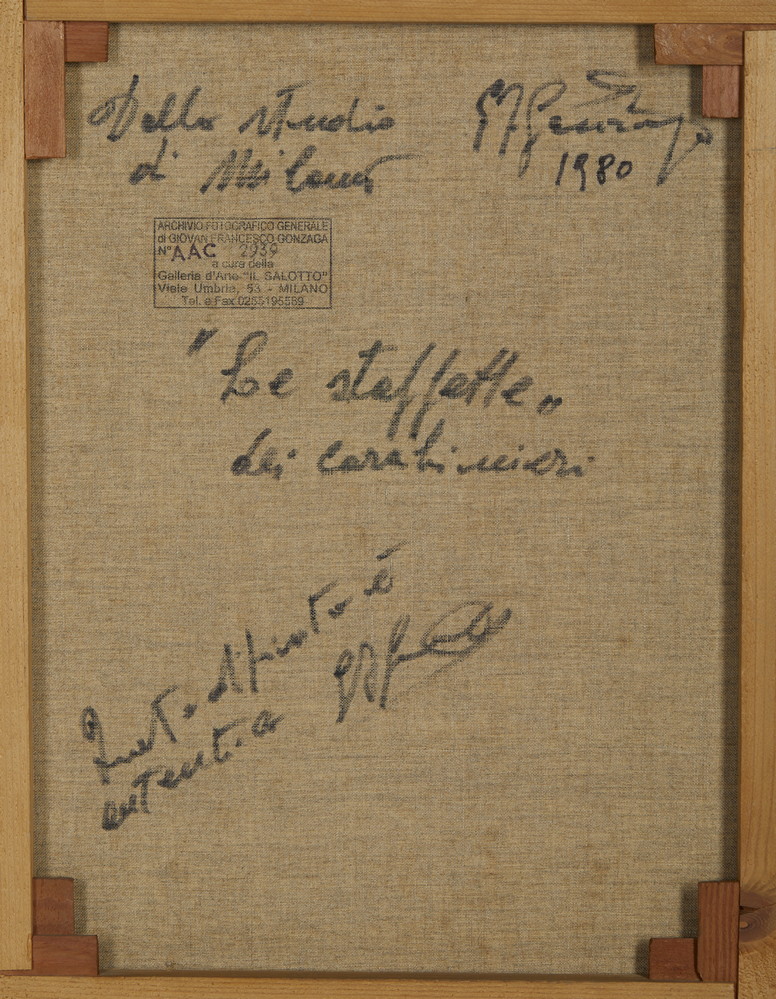 Dello studio
di Milano
GFGonzaga
1980
ARCHIVIO FOTOGRAFICO GENERALE
di GIOVAN FRANCESCO GONZAGA
N° AAC 2939
a cura della
Galleria d'Arte "IL SALOTTO"
Viale Umbria, 53 - MILANO
Tel. e Fax 0255195589
"Le staffette"
dei carabinieri
Questo dipinto è
autentico